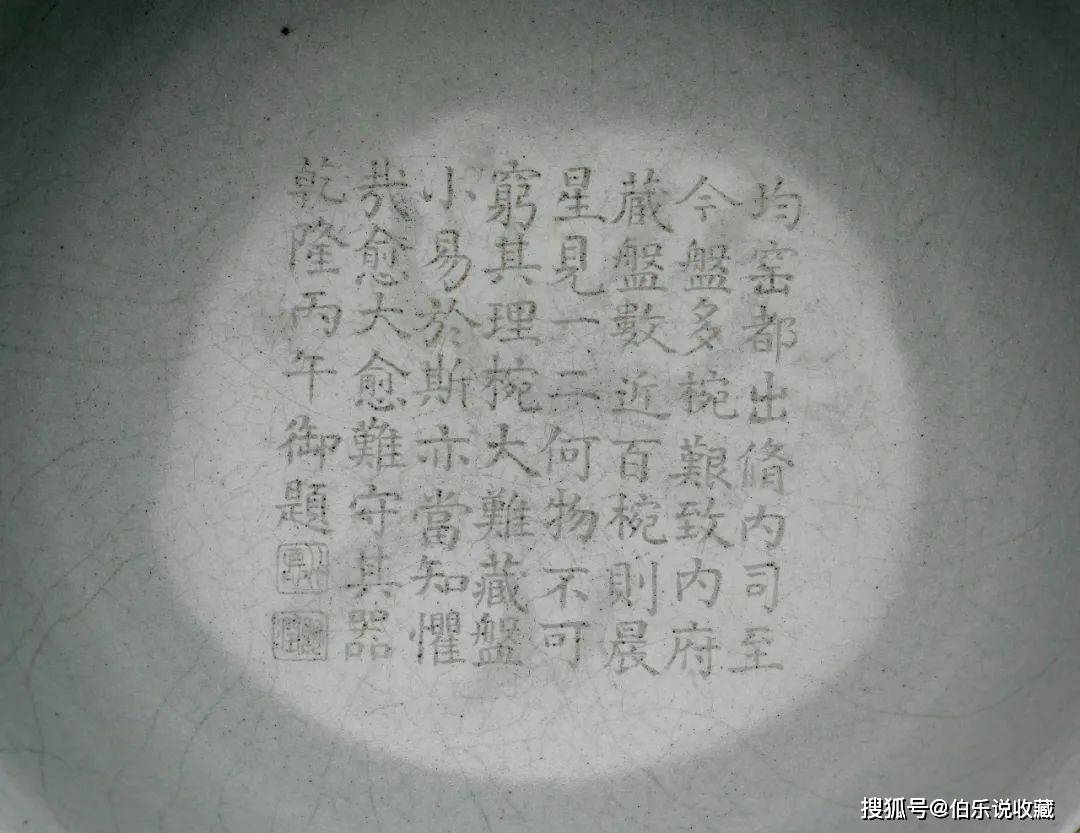 均窑都出脩内司至
今盤多椀艱致内府
藏盤數近百椀則晨
星見一二何物不可
窮其理椀大難藏盤
小易於斯亦當知懼
哉愈大愈難守其器
乾隆丙午御題
搜狐号@伯乐说收藏